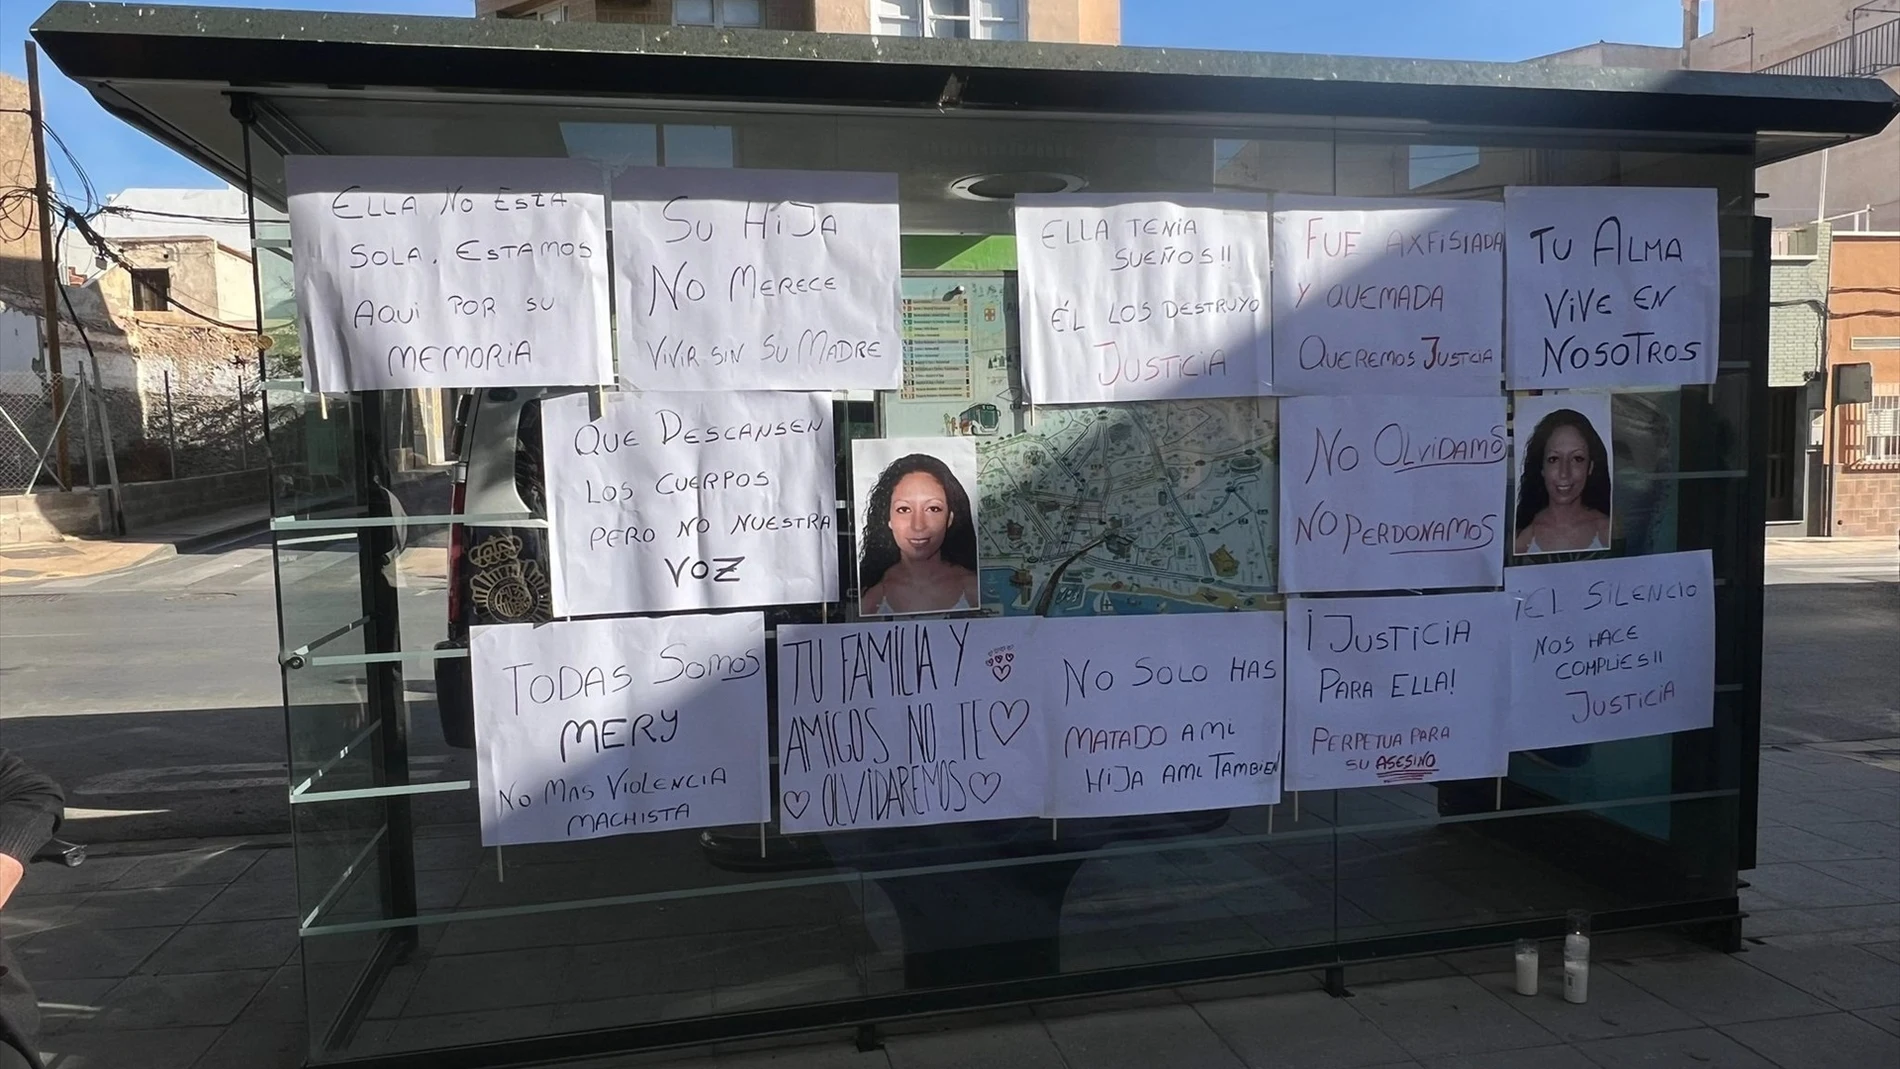 ELLA NO ESTA
SOLA. ESTAMOS
AQUI POR SU
MEMORIA
SU HIJA
NO MERECE
VIVIR SIN SU MADRE
ELLA TENIA
SUEÑOS!!
ÉL LOS DESTRUYO
JUSTICIA
FUE AXFISIADA
Y QUEMADA
QUEREMOS JUSTICIA
TU ALMA
VIVE EN
NOSOTROS
QUE DESCANSEN
LOS CUERPOS
PERO NO NUESTRA
VOZ
NO OLVIDAMOS
NO PERDONAMOS
TODAS SOMOS
MERY
NO MAS VIOLENCIA
MACHISTA
TU FAMILIA Y
AMIGOS NO TE
OLVIDAREMOS
NO SOLO HAS
MATADO A MI
HIJA A MI TAMBIEN
¡JUSTICIA
PARA ELLA!
PERPETUA PARA
SU ASESINO
¡EL SILENCIO
NOS HACE
COMPLIES!!
JUSTICIA